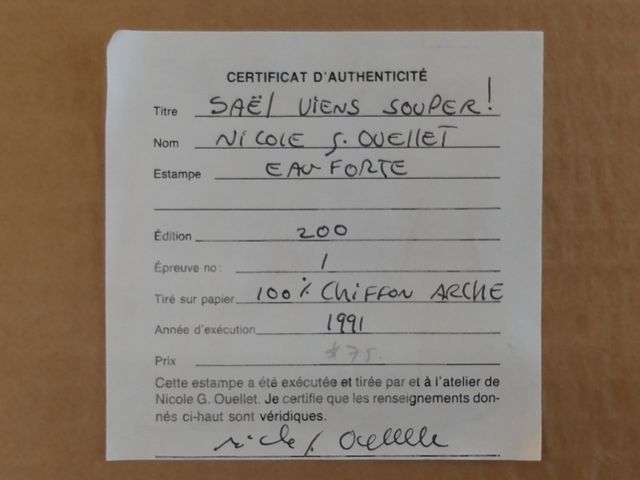 CERTIFICAT D'AUTHENTICITÉ
Titre SAËL VIENS SOUPER!
Nom NICOLE G. OUELLET
Estampe EAU-FORTE
Édition 200
Épreuve no: 1
Tiré sur papier 100% CHIFFON ARCHE
Année d'exécution 1991
Prix $75.
Cette estampe a été exécutée et tirée par et à l'atelier de
Nicole G. Ouellet. Je certifie que les renseignements don-
nés ci-haut sont véridiques.
Nicole G. Ouellette